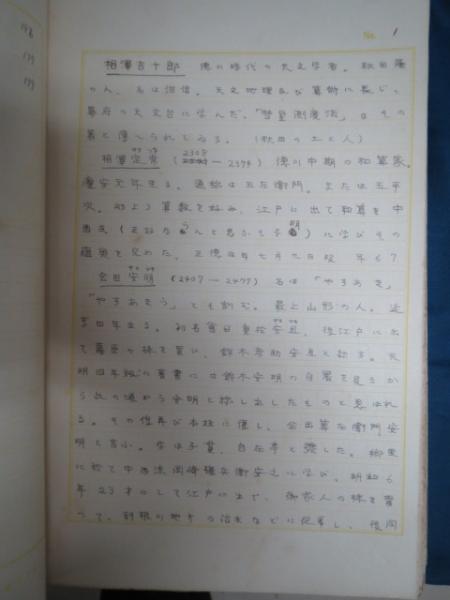 No. 1
178
179
179
相澤吉十郎 徳川時代の天文学者。秋田藩
の人、名は
天文地理及び算術に長じ、
幕府の天文台に学んだ。「彗星測度法」はその
著と傳へられてゐる。(秋田の土と人)
相澤定常(2308 ― 2374)徳川中期の和算家。
慶安元年生る。通称は五左衛門、または五平
次。幼より算数を好み、江戸に出て和算を中
に学びその
蘊奥を究めた。正徳四年七月九日歿 年67
会田安明(2407 ― 2477)名は「やすあき」
「やすあきら」とも訓む。最上山形の人。延
享四年生る。初名曾田重松安旦、後江戸に出
て幕臣の株を買い、鈴木彦助安旦と改る。天
明四年頃の著書には鈴木安明の自署を見るか
ら此の頃から安明と称し出したものと思はれ
る。その後再び本姓に復し、会田算左衛門安
明と言ふ。字は子貫、自在亭と號した。郷里
に於て中西流岡崎
安之に学び、明和6
年23才にして江戸に出で、御家人の株を買
って、利根川
の治水などに従事し、後同